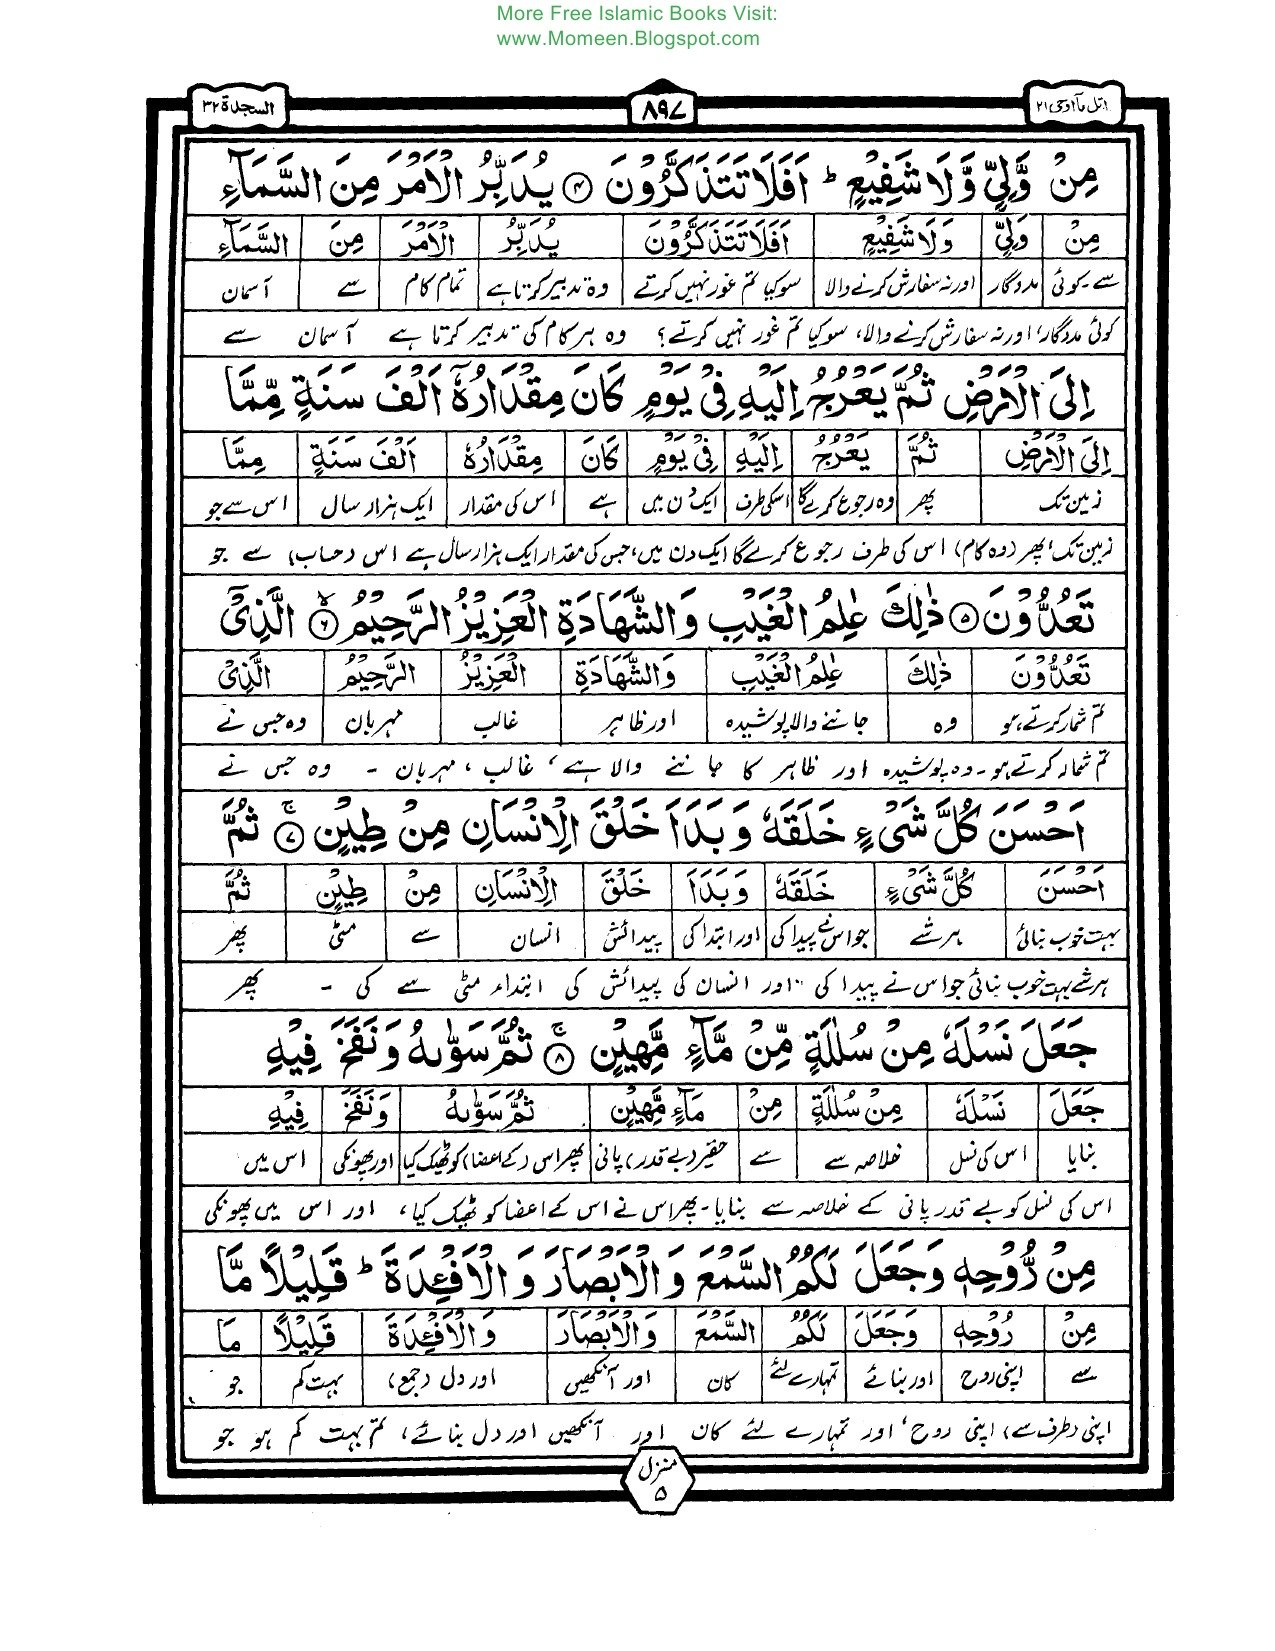 More Free Islamic Books Visit:
www.Momeen.Blogspot.com
اتل مآاوحی ۲۱ ۸۹۷ السجدة ۳۲
مِنْ وَّلِيٍّ وَّلَا شَفِيْعٍ ؕ اَفَلَا تَتَذَكَّرُوْنَ ۴ يُدَبِّرُ الْاَمْرَ مِنَ السَّمَآءِ
مِنْ وَلِيٍّ وَلَا شَفِيْعٍ اَفَلَا تَتَذَكَّرُوْنَ يُدَبِّرُ الْاَمْرَ مِنَ السَّمَآءِ
سے۔کوئی مددگار اور نہ سفارش کرنے والا سو کیا تم غور نہیں کرتے وہ تدبیر کرتا ہے تمام کام سے آسمان
کوئی مددگار، اور نہ سفارش کرنے والا، سو کیا تم غور نہیں کرتے؟ وہ ہر کام کی تدبیر کرتا ہے آسمان سے
اِلَى الْاَرْضِ ثُمَّ يَعْرُجُ اِلَيْهِ فِيْ يَوْمٍ كَانَ مِقْدَارُهٗۤ اَلْفَ سَنَةٍ مِّمَّا
اِلَى الْاَرْضِ ثُمَّ يَعْرُجُ اِلَيْهِ فِيْ يَوْمٍ كَانَ مِقْدَارُهٗ اَلْفَ سَنَةٍ مِمَّا
زمین تک پھر وہ رجوع کرے گا اسکی طرف ایک دن میں ہے اس کی مقدار ایک ہزار سال اس سے جو
زمین تک، پھر (وہ کام) اس کی طرف رجوع کرے گا ایک دن میں، جس کی مقدار ایک ہزار سال ہے اس (حساب) سے جو
تَعُدُّوْنَ ۵ ذٰلِكَ عٰلِمُ الْغَيْبِ وَالشَّهَادَةِ الْعَزِيْزُ الرَّحِيْمُ ۶ۙ الَّذِيْۤ
تَعُدُّوْنَ ذٰلِكَ عٰلِمُ الْغَيْبِ وَالشَّهَادَةِ الْعَزِيْزُ الرَّحِيْمُ الَّذِيْ
تم شمار کرتے ہو وہ جاننے والا پوشیدہ اور ظاہر غالب مہربان وہ جس نے
تم شمار کرتے ہو۔ وہ پوشیدہ اور ظاہر کا جاننے والا ہے، غالب، مہربان ۔ وہ جس نے
اَحْسَنَ كُلَّ شَيْءٍ خَلَقَهٗ وَبَدَاَ خَلْقَ الْاِنْسَانِ مِنْ طِيْنٍ ۷ۚ ثُمَّ
اَحْسَنَ كُلَّ شَيْءٍ خَلَقَهٗ وَبَدَاَ خَلْقَ الْاِنْسَانِ مِنْ طِيْنٍ ثُمَّ
بہت خوب بنائی ہر شے جو اس نے پیدا کی اور ابتدا کی پیدائش انسان سے مٹی پھر
ہر شے بہت خوب بنائی جو اس نے پیدا کی اور انسان کی پیدائش کی ابتداء مٹی سے کی ۔ پھر
جَعَلَ نَسْلَهٗ مِنْ سُلٰلَةٍ مِّنْ مَّآءٍ مَّهِيْنٍ ۸ۚ ثُمَّ سَوّٰىهُ وَنَفَخَ فِيْهِ
جَعَلَ نَسْلَهٗ مِنْ سُلٰلَةٍ مِنْ مَآءٍ مَّهِيْنٍ ثُمَّ سَوّٰىهُ وَنَفَخَ فِيْهِ
بنایا اس کی نسل خلاصہ سے سے حقیر (بے قدر) پانی پھر اس (کے اعضا) کو ٹھیک کیا اور پھونکی اس میں
اس کی نسل کو بے قدر پانی کے خلاصہ سے بنایا۔ پھر اس نے اس کے اعضا کو ٹھیک کیا، اور اس میں پھونکی
مِنْ رُّوْحِهٖ وَجَعَلَ لَكُمُ السَّمْعَ وَالْاَبْصَارَ وَالْاَفْـِٕدَةَ ؕ قَلِيْلًا مَّا
مِنْ رُوْحِهٖ وَجَعَلَ لَكُمُ السَّمْعَ وَالْاَبْصَارَ وَالْاَفْـِٕدَةَ قَلِيْلًا مَا
سے اپنی روح اور بنائے تمہارے لئے کان اور آنکھیں اور دل (جمع) بہت کم جو
اپنی (طرف سے) اپنی روح، اور تمہارے لئے کان اور آنکھیں اور دل بنائے، تم بہت کم ہو جو
منزل ۵